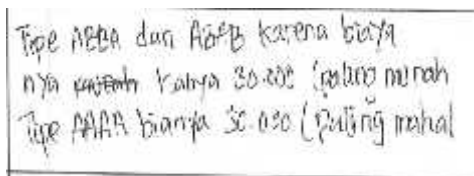 Tipe ABBA dan ABAB karena biaya
nya hanya 30.000 (paling murah
Tipe AAAA bianya 50.000 (paling mahal